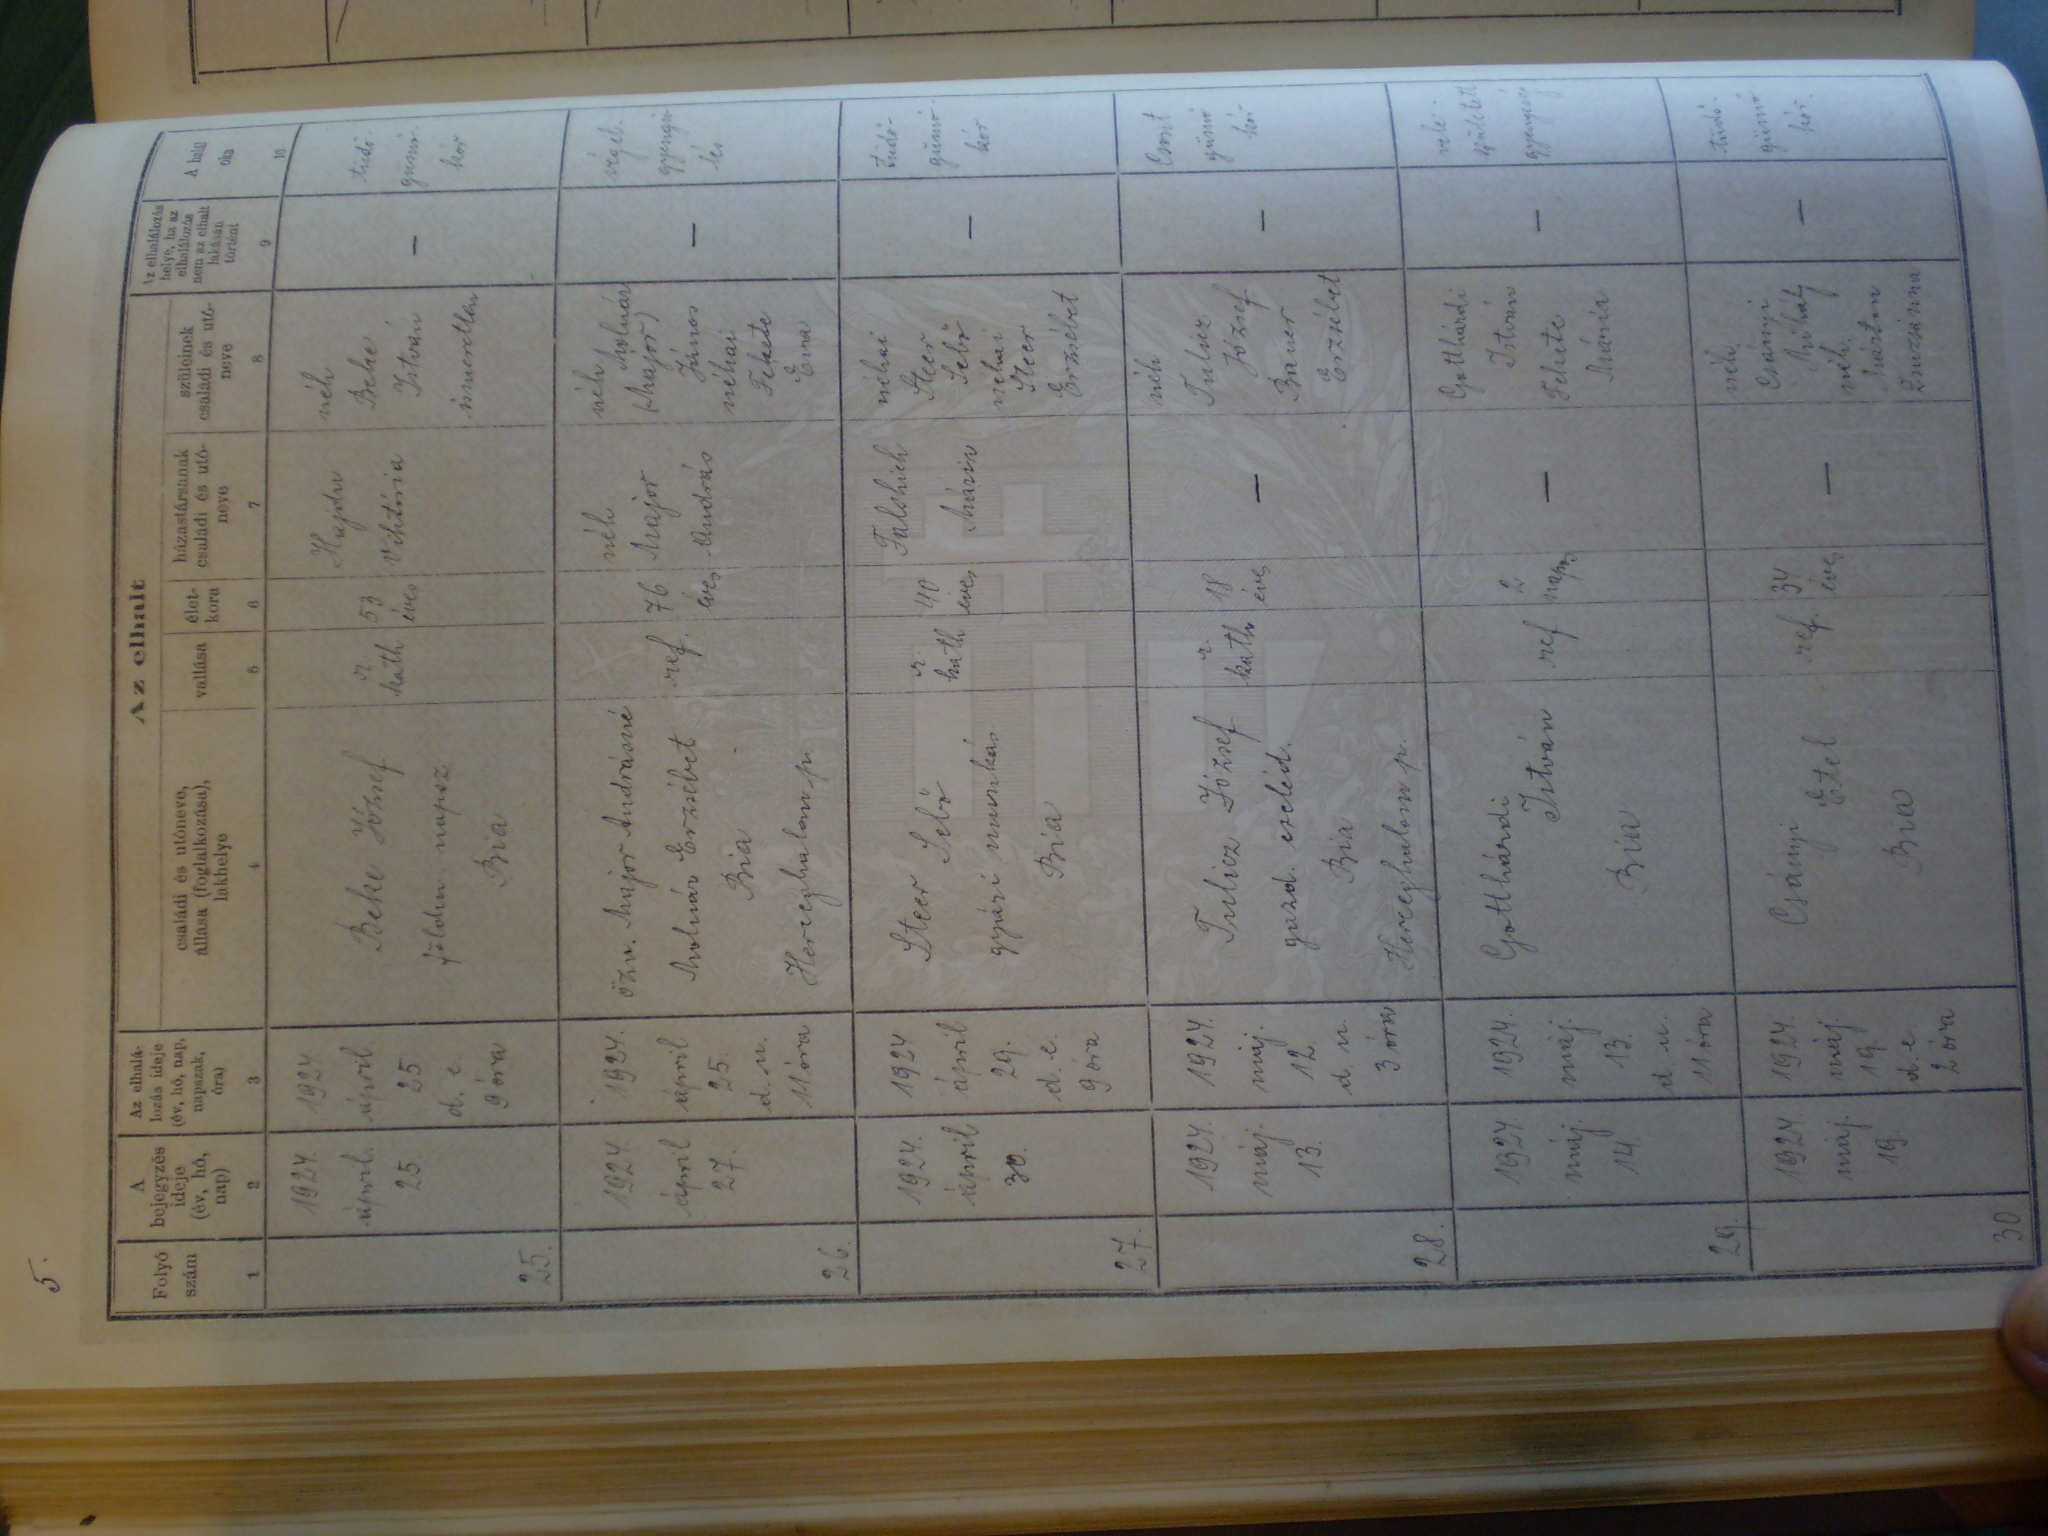 5.
Az elhalt
Folyó
szám
A
bejegyzés
ideje
(év, hó,
nap)
Az elhalá-
lozás ideje
(év, hó, nap,
napszak,
óra)
családi és utóneve,
állása (foglalkozása),
lakhelye
vallása
élet-
kora
házastársának
családi és utó-
neve
szüleinek
családi és utó-
neve
Az elhalálozás
helye, ha az
elhalálozás
nem az elhalt
lakásán
történt
A halál
oka
1
2
3
4
5
6
7
8
9
10
25.
1924.
ápril.
25
1924.
ápril
25
d. e.
9 óra
Beke József
földm. napsz.
Bia
r.
kath
53
éves
Hajdu
Viktória
néh
Beke
István
ismeretlen
—
tüdő-
gümő-
kór
26.
1924.
ápril
27.
1924.
ápril
25.
d. u.
11 óra
özv. Major Andrásné
Molnár Erzsébet
Bia
Herceghalom p.
ref.
76
éves
néh
Major
András
néh Molnár
(Major)
János
néhai
Fekete
Éva
—
végel-
gyengü-
lés
27.
1924.
ápril
30.
1924
ápril
29.
d. e.
9 óra
Steer Sebő
gyári munkás
Bia
r.
kath
40
éves
Mária
néhai
Steer
Sebő
néhai
Steer
Erzsébet
—
tüdő-
gümő-
kór
28.
1924.
máj.
13.
1924.
máj.
12.
d. u.
3 óra
Tulicz József
gazd. cseléd.
Bia
Herceghalom p.
r.
kath
18
éves
—
néh
Tulicz
József
Bauer
Erzsébet
—
Csont
gümő
kór
29.
1924.
máj.
14.
1924.
máj.
13.
d. u.
11 óra
Gotthárdi
István
Bia
ref.
2
napos
—
Gotthárdi
István
Fekete
Mária
—
vele-
született
gyengeség
30
1924.
máj.
19.
1924.
máj.
19.
d. e.
2 óra
Csányi
Etel
Bia
ref.
34
éves
—
néh.
Csányi
Mihály
néh.
Márton
Zsuzsánna
—
tüdő-
gümő-
kór.